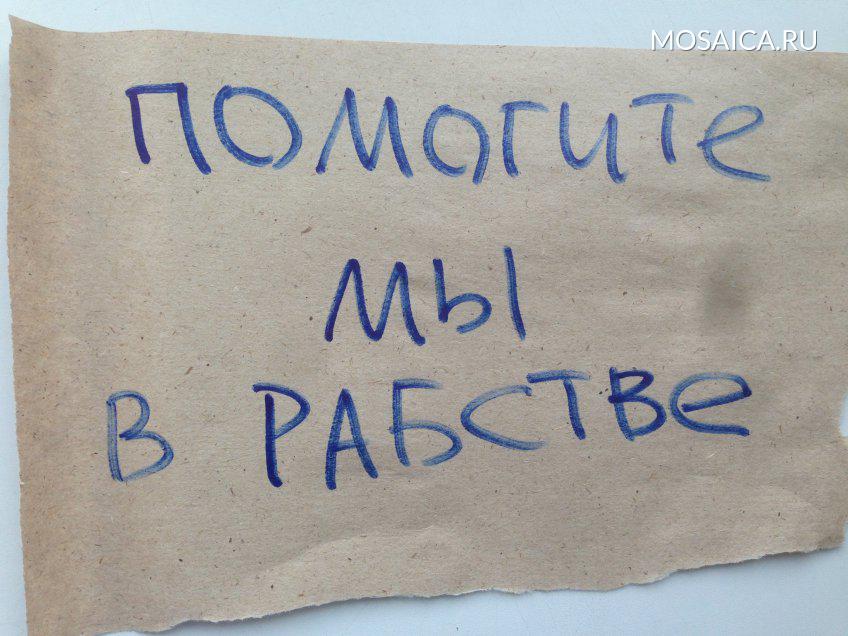 MOSAICA.RU
ПОМОГИТЕ
МЫ
В РАБСТВЕ